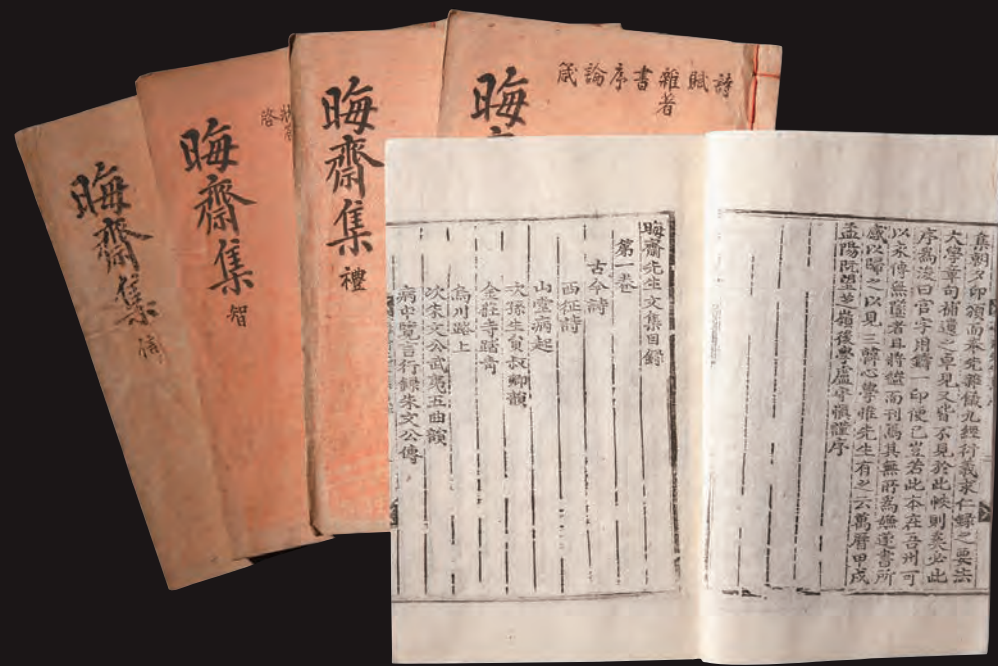 晦齋集
晦齋集 智
晦齋集 禮
晦
詩 賦 雜著 書 序 論 箴
九經衍義求仁錄之要法
大學章句補遺之卓見又皆不見於此帙則奚必此
序爲浚曰官字用鑄一印便已豈若此本在吾州可
以永傳無隱者且將謄而刊焉其無所爲嫌遂書所
感以歸之以見三韓心學惟先生有之云萬曆甲戌
孟陽 嶺後學盧守愼謹序
晦齋先生文集目錄
第一卷
古今詩
西征詩
山堂病起
次孫生員叔卿韻
金莊寺踏靑
烏川路上
次朱文公武夷五曲韻
病中覽言行錄朱文公傳